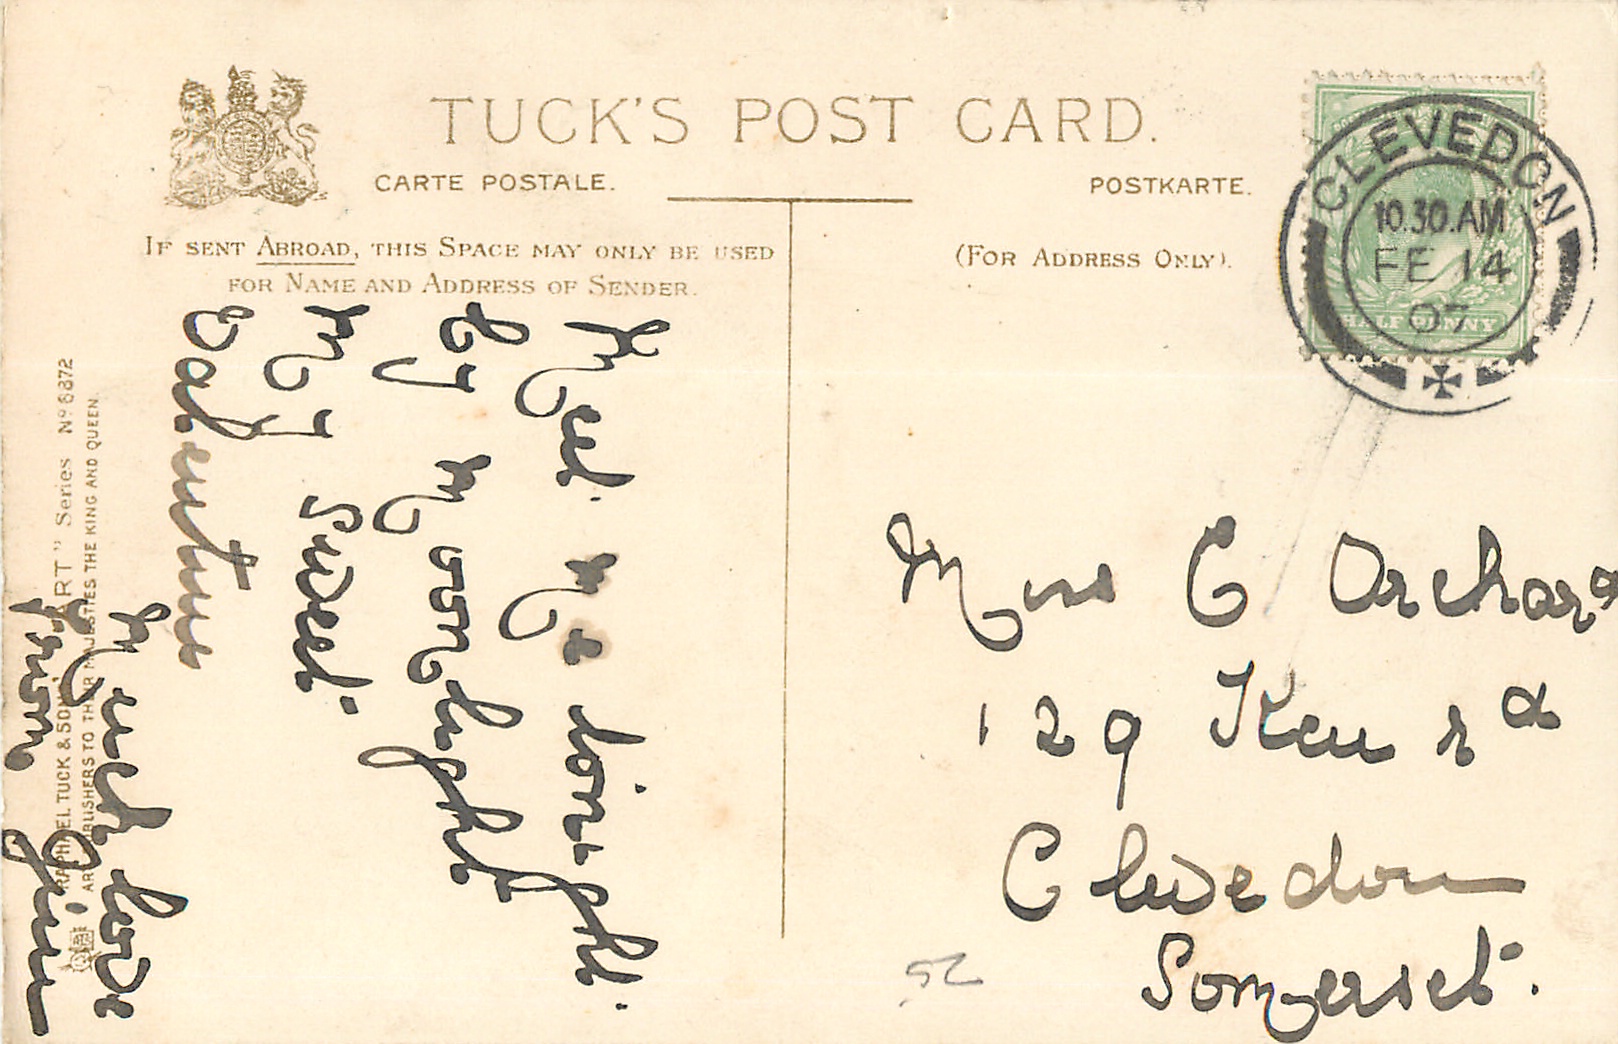 TUCK'S POST CARD.
CARTE POSTALE.
POSTKARTE.
IF SENT ABROAD, THIS SPACE MAY ONLY BE USED
FOR NAME AND ADDRESS OF SENDER.
(FOR ADDRESS ONLY).
CLEVEDON
10.30.AM
FE 14
07
HALFPENNY
Meet me tonight
by moonlight
my sweet
Valentine
Much love
from Jim
RAPHAEL TUCK & SONS' "ART" Series No 6872
ART PUBLISHERS TO THEIR MAJESTIES THE KING AND QUEEN.
Miss C Orchard
129 Ken Rd
Clevedon
Somerset.
52